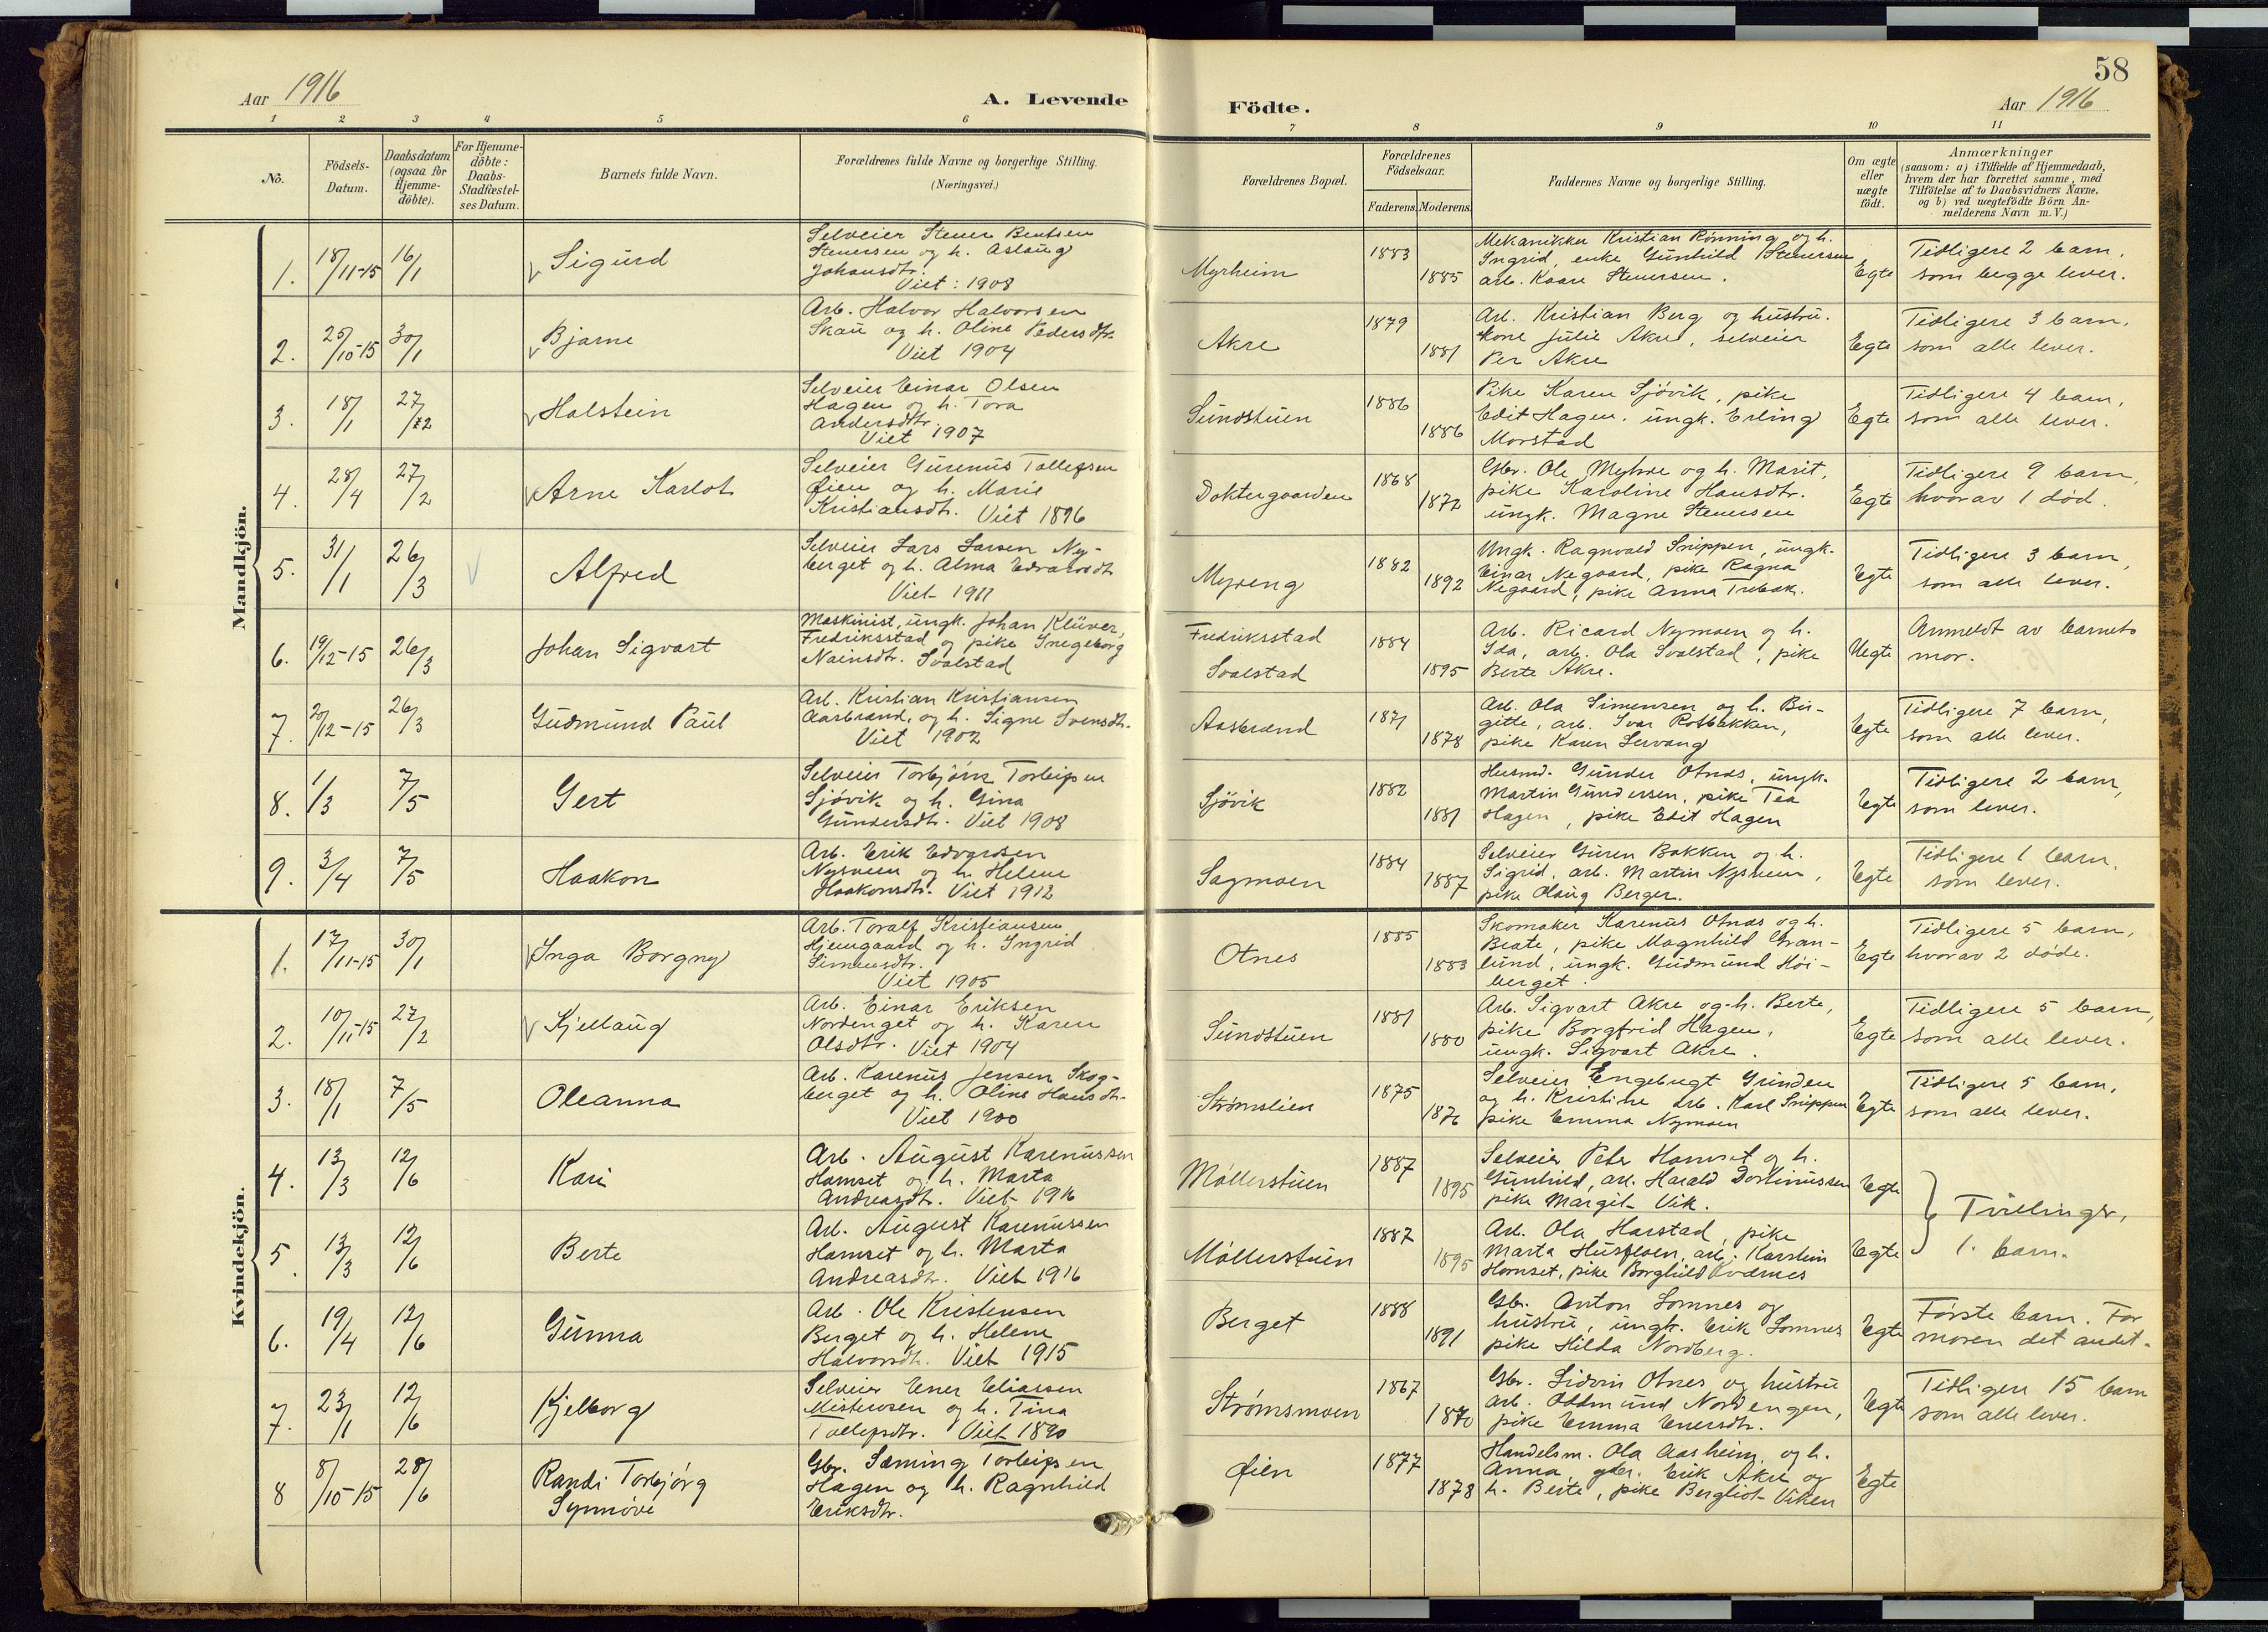 58
Aar 1916
A. Levende
Födte.
Aar 1916
1 2 3 4 5 6 7 8 9 10 11
No.
Födsels-
Datum.
Daabsdatum
(ogsaa for
Hjemme-
döbte).
For Hjemme-
döbte:
Daabs-
Stadfæstel-
ses Datum.
Barnets fulde Navn.
Forældrenes fulde Navne og borgerlige Stilling.
(Næringsvei.)
Forældrenes Bopæl.
Forældrenes
Födselsaar.
Faderens. Moderens.
Faddernes Navne og borgerlige Stilling.
Om ægte
eller
uægte
födt.
Anmærkninger
(saasom: a) i Tilfælde af Hjemmedaab,
hvem der har forrettet samme, med
Tilföielse af to Daabsvidners Navne,
og b) ved uægtefödte Börn An-
melderens Navn m. V.)
Mandkjön.
1. 18/11-15 16/1 Sigurd
Selveier Stener Bentsen
Stenersen og h. Aslaug
Johansdtr.
Viet: 1908
Myrheim 1883 1885
Mekanikker Kristian Rönning og h.
Ingrid, enke Gunhild Stenersen
arb. Kaare Stenersen.
Egte
Tidligere 2 barn,
som begge lever.
2. 25/10-15 30/1 Bjarne
Arb. Halvor Halvorsen
Skau og h. Oline Pedersdtr.
Viet 1904
Akre 1879 1881
Arb. Kristian Berg og hustru.
Kone Julie Akre, selveier
Per Akre
Egte
Tidligere 3 barn,
som alle lever.
3. 18/1 27/2 Halstein
Selveier Einar Olsen
Hagen og h. Tora
Andersdtr.
Viet 1907
Sundstuen 1886 1886
Pike Karen Sjövik, pike
Edit Hagen, ungk. Erling
Morstad
Egte
Tidligere 4 barn,
som alle lever.
4. 28/4 27/2 Arne Karlot
Selveier Gurenus Tollefsen
Øien og h. Marie
Kristiansdt. Viet 1896
Doktergaarden 1868 1872
Gbr. Ole Myhre og h. Marit,
pike Karoline Hansdtr.
ungk. Magne Stenersen
Egte
Tidligere 9 barn,
hvorav 1 död.
5. 31/1 26/3 Alfred
Selveier Lars Larsen Ny-
berget og h. Alma Edvardsdt
Viet 1911
Myreng 1882 1892
Ungk. Ragnvald Snippen, ungk.
Einar Negaard, pike Ragna
Negaard, pike Anna Trebak.
Egte
Tidligere 3 barn,
som alle lever.
6. 19/12-15 26/3 Johan Sigvart
Maskinist, ungk. Johan Klüver,
Fredriksstad og pike Inegeborg
Nainsdtr. Svalstad
Fredriksstad
Svalstad
1884 1895
Arb. Ricard Nymoen og h.
Ida, arb. Ola Svalstad, pike
Berte Akre.
Uegte
Anmeldt av barnets
mor.
7. 20/12-15 26/3 Gudmund Paul
Arb. Kristian Kristiansen
Aasbrænd, og h. Signe Svensdtr.
Viet 1902
Aasbrænd 1871 1878
Arb. Ola Simensen og h. Bir-
gitte, arb. Ivar Rotbakken,
pike Karen Lervang
Egte
Tidligere 7 barn,
som alle lever.
8. 1/3 7/5 Gert
Selveier Torbjörn Torleifsen
Sjövik og h. Gina
Gundersdt. Viet 1908
Sjövik 1882 1881
Husmd. Gunder Otnes, ungk.
Martin Gundersen, pike Tea
Hagen, pike Edit Hagen
Egte
Tidligere 2 barn,
som lever.
9. 3/4 7/5 Haakon
Arb. Erik Edvardsen
Nysveen og h. Helene
Haakonsdtr. Viet 1912
Sagmoen 1884 1887
Selveier Guren Bakken og h.
Sigrid, arb. Martin Nysveen,
pike Olaug Berger.
Egte
Tidligere 1 barn,
som lever.
Kvindekjön.
1. 17/11-15 30/1 Inga Borgny
Arb. Toralf Kristiansen
Hjemgaard og h. Ingrid
Simensdtr.
Viet 1905
Otnes 1885 1883
Skomaker Karenus Otnes og h.
Beate, pike Magnhild Gran-
lund, ungk. Gudmund Höi-
berget.
Egte
Tidligere 5 barn,
hvorav 2 döde.
2. 10/11-15 27/2 Kjellaug
Arb. Einar Eriksen
Nordenget og h. Karen
Olsdtr. Viet 1904
Sundstuen 1881 1880
Arb. Sigvart Akre og h. Berte,
pike Borgfrid Hagen,
ungk. Sigvart Akre.
Egte
Tidligere 5 barn,
som alle lever.
3. 18/1 7/5 Oleanna
Arb. Karenus Jensen Skog-
berget og h. Oline Hansdtr.
Viet 1900
Strømslien 1875 1876
Selveier Engebregt Grinden
og h. Kristine arb. Karl Snippen
pike Emma Nymoen
Egte
Tidligere 5 barn,
som alle lever.
4. 13/3 12/6 Kari
Arb. August Karenussen
Hornset og h. Marta
Andreasdt. Viet 1916
Möllerstuen 1887 1895
Selveier Peter Hornset og h.
Gunhild, arb. Harald Dortinussen
pike Margit Vik.
Egte
Tvillinger,
1. barn.
5. 13/3 12/6 Berte
Arb. August Karenussen
Hornset og h. Marta
Andreasdtr. Viet 1916
Möllerstuen 1887 1895
Arb. Ola Harstad, pike
Marta Husfloen, arb. Karstein
Hornset, pike Borghild Kværnes
Egte
6. 19/4 12/6 Gunna
Arb. Ole Kristensen
Berget og h. Helene
Halvorsdt. Viet 1915
Berget 1888 1891
Gbr. Anton Lomnes og
hustru, ungk. Erik Lomnes
pike Hilda Nordberg.
Egte
Första barn. For
moren det andet.
7. 23/1 12/6 Kjelborg
Selveier Ener Eliassen
Misterosen og h. Tina
Tollefsdtr. Viet 1890
Strømsmoen 1867 1870
Gbr. Sidvin Otnes og hustru
arb. Oddmund Nordengen,
pike Emma Enersdtr.
Egte
Tidligere 15 barn
som alle lever.
8 8/10-15 28/6 Randi Torbjörg
Synnöve
Gbr. Sæming Torleifsen
Hagen og h. Ragnhild
Eriksdtr.
Øien 1877 1878
Handelsm. Ola Aasheim og h.
Anna, gbr. Erik Akre og
h. Berte, pike Bergliot Viken
Egte